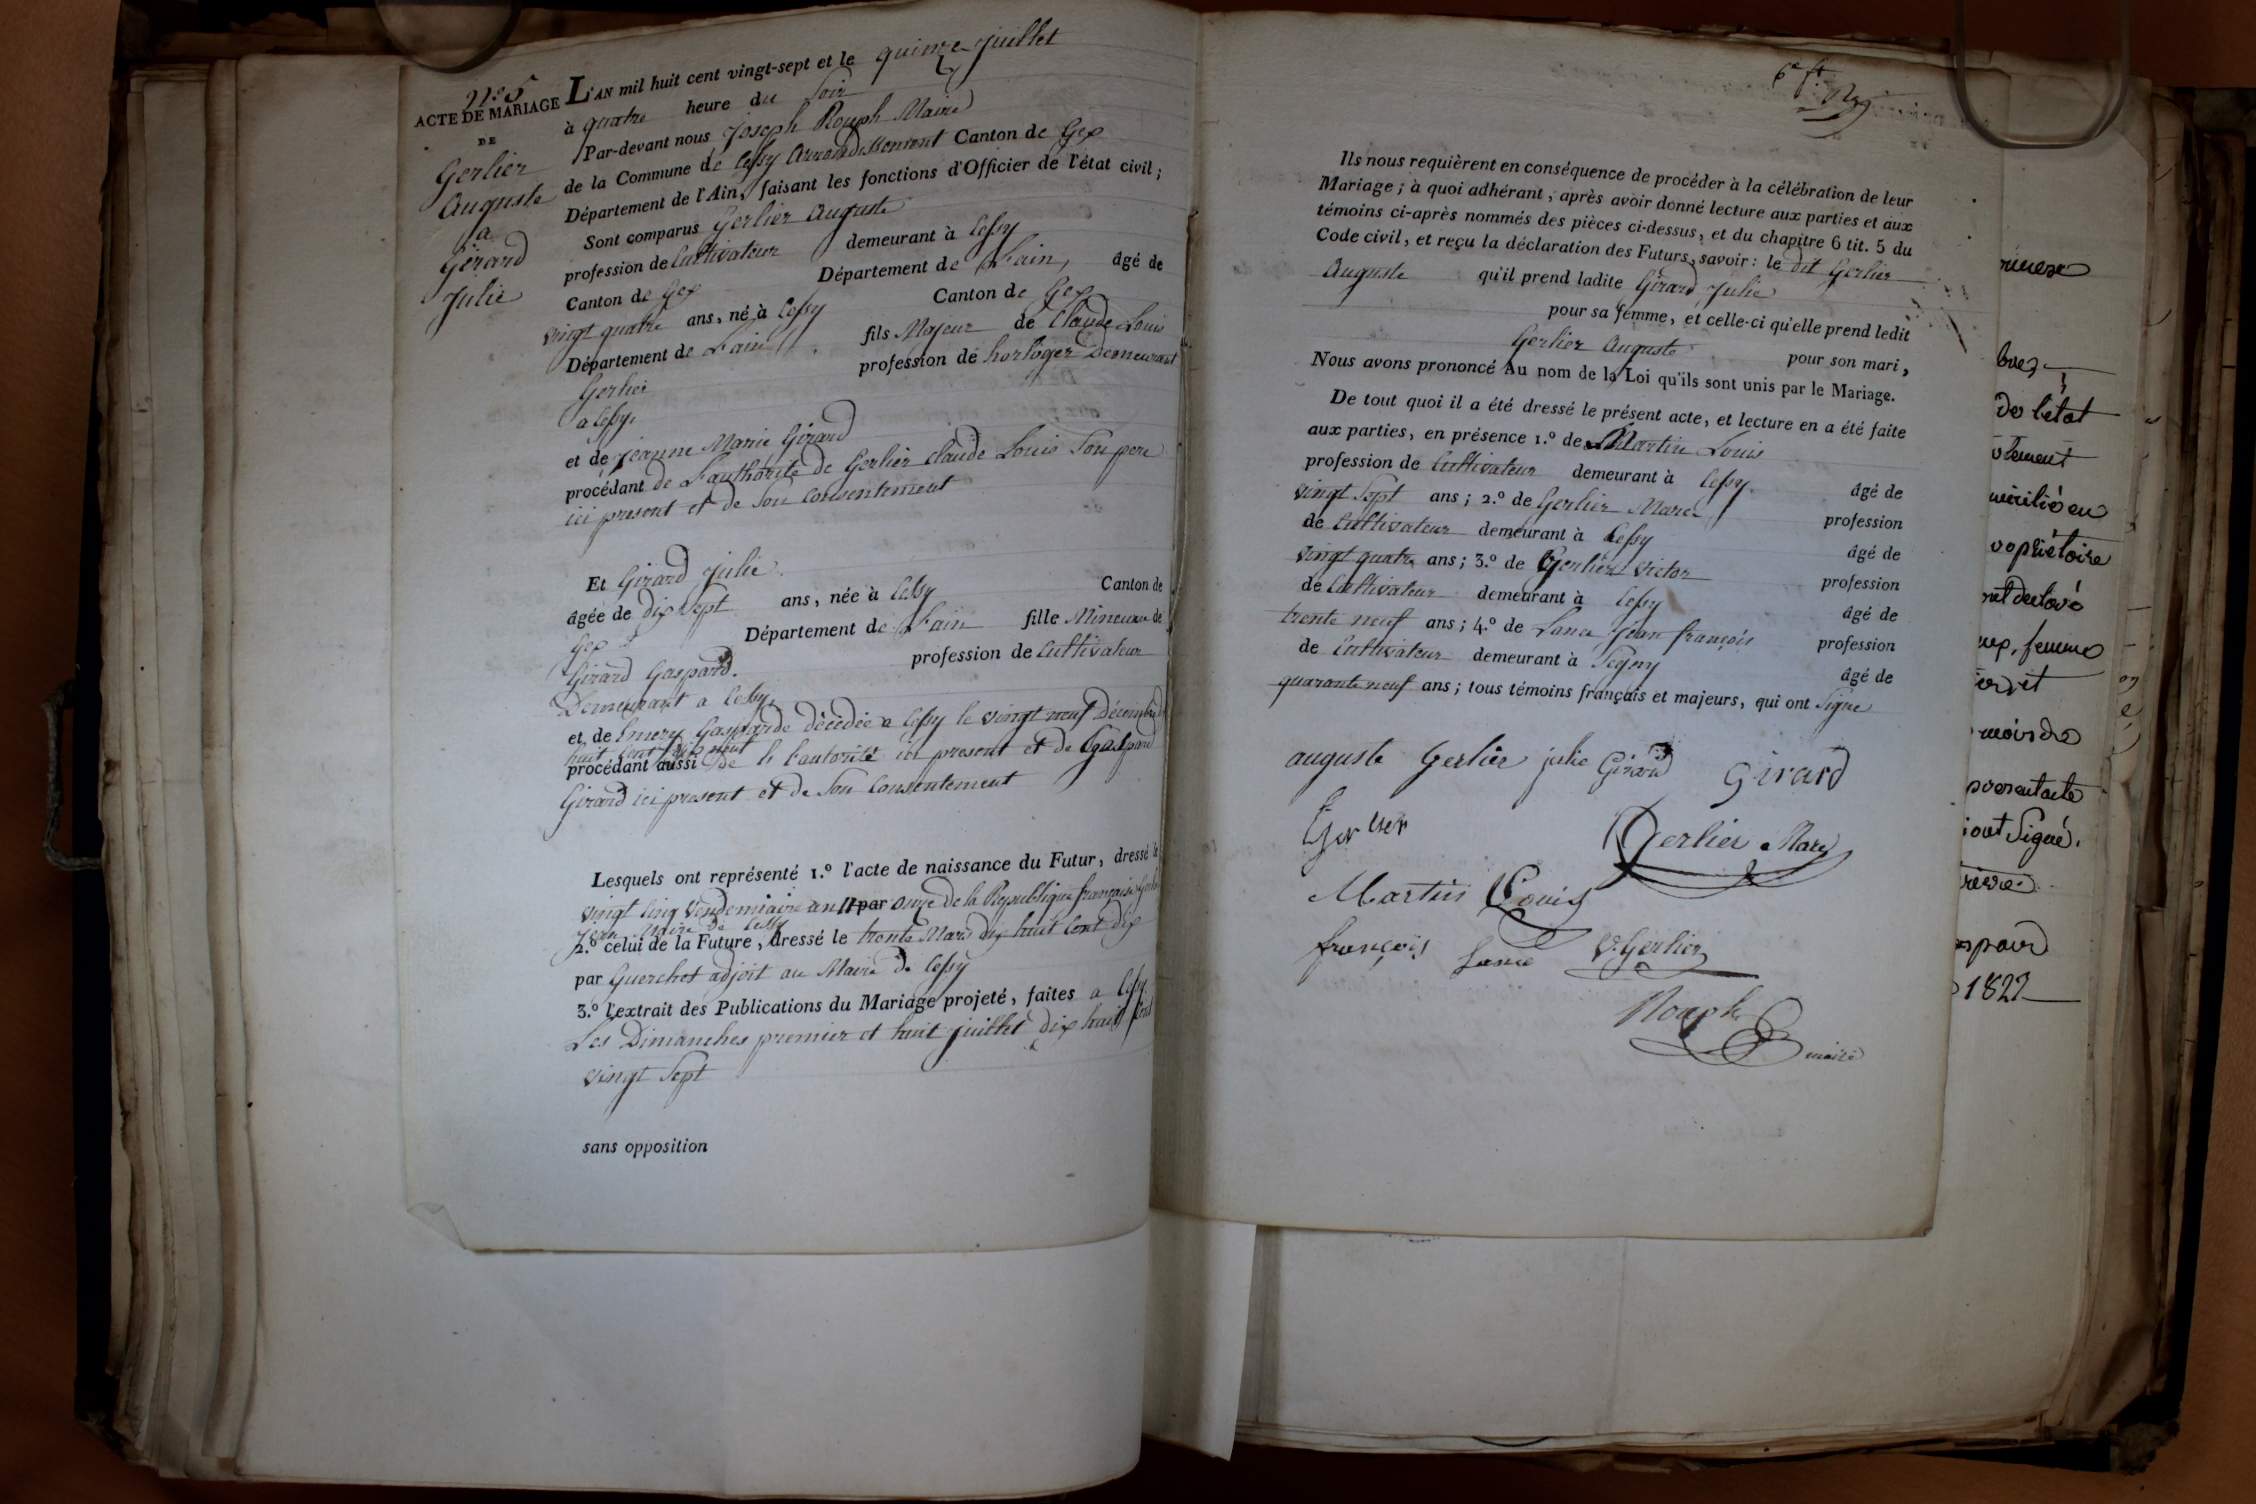 N.o 5
ACTE DE MARIAGE
DE
Gerlier
Auguste
a
Girard
Julie
L'AN mil huit cent vingt-sept et le quinze juillet
à quatre heure du soir
Par-devant nous Joseph Rouph Maire
de la Commune de Cessy Arrondissement Canton de Gex
Département de l'Ain, faisant les fonctions d'Officier de l'état civil;
Sont comparus Gerlier Auguste
profession de Cultivateur demeurant à Cessy
Canton de Gex Département de L'ain, âgé de
vingt quatre ans, né à Cessy Canton de Gex
Département de L'ain fils Majeur de Claude Louis
Gerlier profession de horloger Demeurant
a Cessy.
et de Jeanne Marie Girard
procédant de L'authorité de Gerlier Claude Louis Son pere
ici present et de Son Consentement
Et Girard Julie
âgée de dix Sept ans, née à Cessy Canton de
Gex Département de L'ain fille Mineure de
Girard Gaspard. profession de Cultivateur
Demeurant a Cessy.
et de Emery Gasparde décédée a Cessy le vingt neuf Décembre
huit Cent
procédant aussi de l'autorité ici present et de Gaspard
Girard ici present et de Son Consentement
Lesquels ont représenté 1.º l'acte de naissance du Futur, dressé le
vingt Cinq Vendemiaire an 11 par onze de la République française
Jean Maire de Cessy
2.º celui de la Future, dressé le trente Mars dix huit Cent dix
par Guerchet adjoit au Maire de Cessy
3.º l'extrait des Publications du Mariage projeté, faites a Cessy.
Les Dimanches premier et huit juillet dix huit Cent
vingt Sept
sans opposition
6e ft
Ils nous requièrent en conséquence de procéder à la célébration de leur
Mariage; à quoi adhérant, après avoir donné lecture aux parties et aux
témoins ci-après nommés des pièces ci-dessus, et du chapitre 6 tit. 5 du
Code civil, et reçu la déclaration des Futurs, savoir: le dit Gerlier
Auguste qu'il prend ladite Girard Julie
pour sa femme, et celle-ci qu'elle prend ledit
Gerlier Auguste pour son mari,
Nous avons prononcé Au nom de la Loi qu'ils sont unis par le Mariage.
De tout quoi il a été dressé le présent acte, et lecture en a été faite
aux parties, en présence 1.º de Martin Louis
profession de Cultivateur demeurant à Cessy âgé de
vingt Sept ans; 2.º de Gerlier Marc profession
de Cultivateur demeurant à Cessy âgé de
vingt quatre ans; 3.º de Gerlier Victor profession
de Cultivateur demeurant à Cessy âgé de
trente neuf ans; 4.º de Lance Jean françois profession
de Cultivateur demeurant à Segny âgé de
quarante neuf ans; tous témoins français et majeurs, qui ont Signe
auguste Gerlier julie Girard Girard
Gerlier
Gerlier Marc
Martin Louis
françois Lance V. Gerlier
Rouph
maire
de l'état
femme
out Signé.
1822